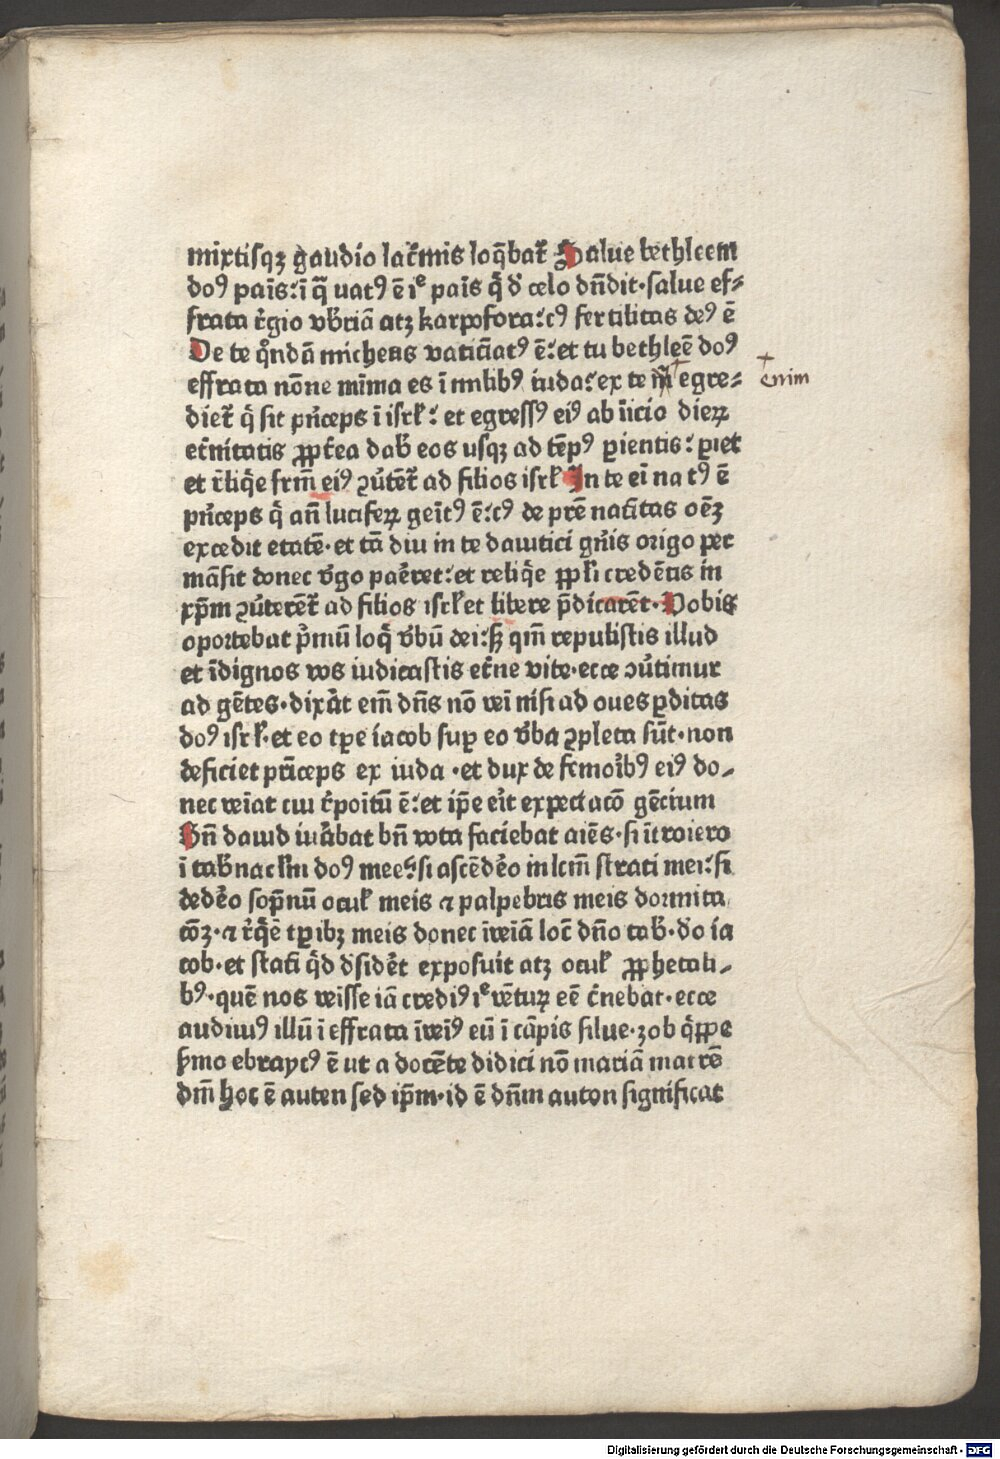 mixtisqꝫ gaudio lac̄mis loq̄bat̄ Salue bethleem
doꝰ pais: ī q̄ uatꝰ ē iͤ pais q̄ d̄ celo dn̄dit·salue ef⸗
frata r̄gio vb̄riā atꝫ karpofora: cꝰ fertilitas deꝰ ē
De te qͦndā micheas vaticīatꝰ ē: et tu bethleē doꝰ
effrata nōne mīma es ī mlibꝰ iuda: ex te m̄ egre⸗
enim
diet̄ q̄ sit pn̄ceps ī isrl̄: et egressꝰ eiꝰ ab īicio dieꝝ
et̄nitatis ꝓpt̄ea dab̄ eos usqꝫ ad tēpꝰ ꝑientis: ꝑiet
et r̄liq̄e frm̄ eiꝰ ꝯūtēt̄ ad filios isrl̄ In te eī natꝰ ē
pn̄ceps q̄ an̄ lucifeꝝ geītꝰ ē: cꝰ de prē natītas oēꝫ
excedit etatē·et tā diu in te dauitici gn̄is origo per
māsit donec v̄go paēret: et reliq̄e ppl̄i credētis in
xp̄m ꝯūterēt̄ ad filios isrl̄ et libere p̄dicarēt· Vobis
oportebat p̄mū loq̄ v̄bū dei: sꝫ qm̄ repulistis illud
et īdignos vos iudicastis et̄ne vite·ecce ꝯūtimur
ad gētes·dixāt em̄ dn̄s nō veī nisi ad oues ꝑditas
doꝰ isrl̄·et eo tꝑe iacob suꝑ eo v̄ba ꝯpleta sūt·non
deficiet prīceps ex iuda·et dux de femoībꝰ eiꝰ do⸗
nec veīat cui r̄poitū ē: et ip̄e eīt expectacō gēcium
Bn̄ dauid iuābat bn̄ vota faciebat aiēs·si īt roiero
ī tab̄nacl̄m doꝰ mee: si ascēdēo in lcm̄ strati mei: si
dedēo sop̄nū ocul̄ meis ⁊ palpebris meis dormita
cōꝫ·⁊ r̄q̄ē tꝑibꝫ meis donec īveīā loc̄ dn̄o tab̄·dō ia
cob·et statī q̄d d̄sidēt exposuit atꝫ ocul̄ ꝓphetali⸗
bꝰ·quē nos veisse iā crediꝰ iͤ vētuꝝ eē c̄nebat·ecce
audiuꝰ illū ī effrata īveīꝰ eū ī cāpis silue·zob q̄ppe
s̄mo ebraycꝰ ē ut a docēte didici nō mariā matrē
dm̄ hoc ē auten sed ip̄m·id ē dn̄m auton significat
Digitalisierung gefördert durch die Deutsche Forschungsgemeinschaft - DFG